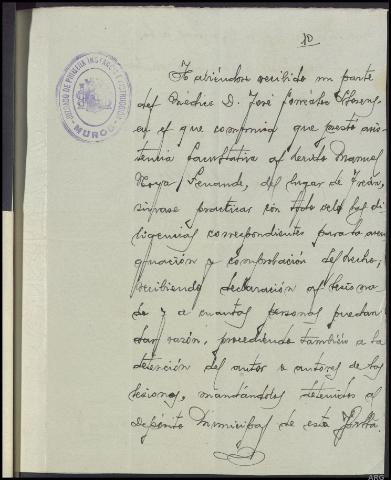 10
JUZGADO DE PRIMERA INSTANCIA E INSTRUCCION
MUROS
Habiéndose recibido un parte
del Médico D. José González
en el que comunica que prestó asis-
tencia facultativa al herido Manuel
Noya del lugar de
sírvase practicar con todo celo las di-
ligencias correspondientes para la ave-
riguación y comprobación del hecho,
recibiendo declaración al lesiona-
do y a cuantas personas puedan
dar razón, procediendo también a la
detención del autor o autores de las
lesiones, mandándolos detenidos al
Depósito Municipal de esta
ARG